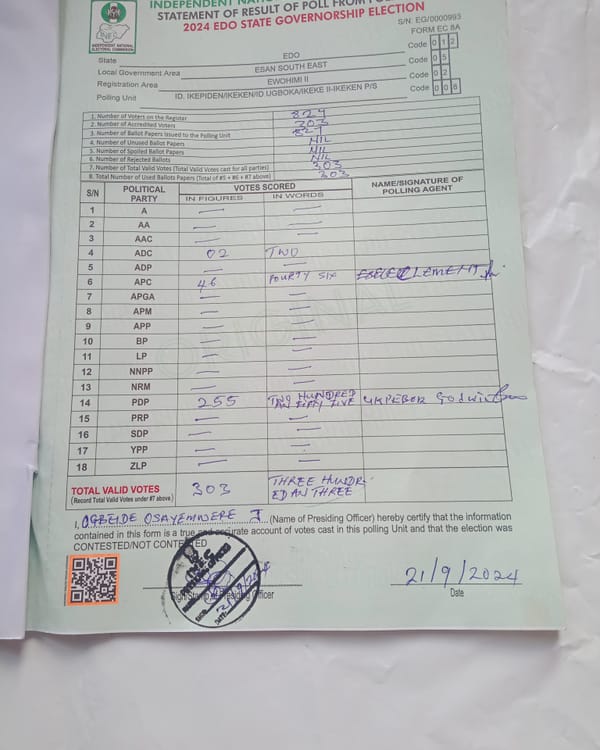 INDEPENDENT NATIONAL
STATEMENT OF RESULT OF POLL FROM
2024 EDO STATE GOVERNORSHIP ELECTION
INEC
INDEPENDENT NATIONAL
ELECTORAL COMMISSION
S/N. EG/0000993
FORM EC 8A
State EDO Code 0 1 2
Local Government Area ESAN SOUTH EAST Code 0 5
Registration Area EWOHIMI II Code 0 2
Polling Unit ID. IKEPIDEN/IKEKEN/ID UGBOKA/IKEKE II-IKEKEN P/S Code 0 0 6
1. Number of Voters on the Register 827
2. Number of Accredited Voters 303
3. Number of Ballot Papers issued to the Polling Unit 827
4. Number of Unused Ballot Papers NIL
5. Number of Spoiled Ballot Papers NIL
6. Number of Rejected Ballots NIL
7. Number of Total Valid Votes (Total Valid Votes cast for all parties) 303
8. Total Number of Used Ballots Papers (Total of #5 + #6 + #7 above) 303
S/N POLITICAL PARTY VOTES SCORED NAME/SIGNATURE OF POLLING AGENT
IN FIGURES IN WORDS
1 A — —
2 AA — —
3 AAC — —
4 ADC 02 TWO
5 ADP — —
6 APC 46 FOURTY SIX CLEMENT
7 APGA — —
8 APM — —
9 APP — —
10 BP — —
11 LP — —
12 NNPP — —
13 NRM — —
14 PDP 255 TWO HUNDRED AN FIFTY FIVE UKPEBOR GODWIN
15 PRP — —
16 SDP — —
17 YPP — —
18 ZLP — —
TOTAL VALID VOTES 303 THREE HUNDR
(Record Total Valid Votes under #7 above) ED AN THREE
ORIGINAL
I, OGBEIDE OSAYEMWERE J (Name of Presiding Officer) hereby certify that the information
contained in this form is a true and accurate account of votes cast in this polling Unit and that the election was
CONTESTED/NOT CONTESTED
21/9/2024
Officer Date